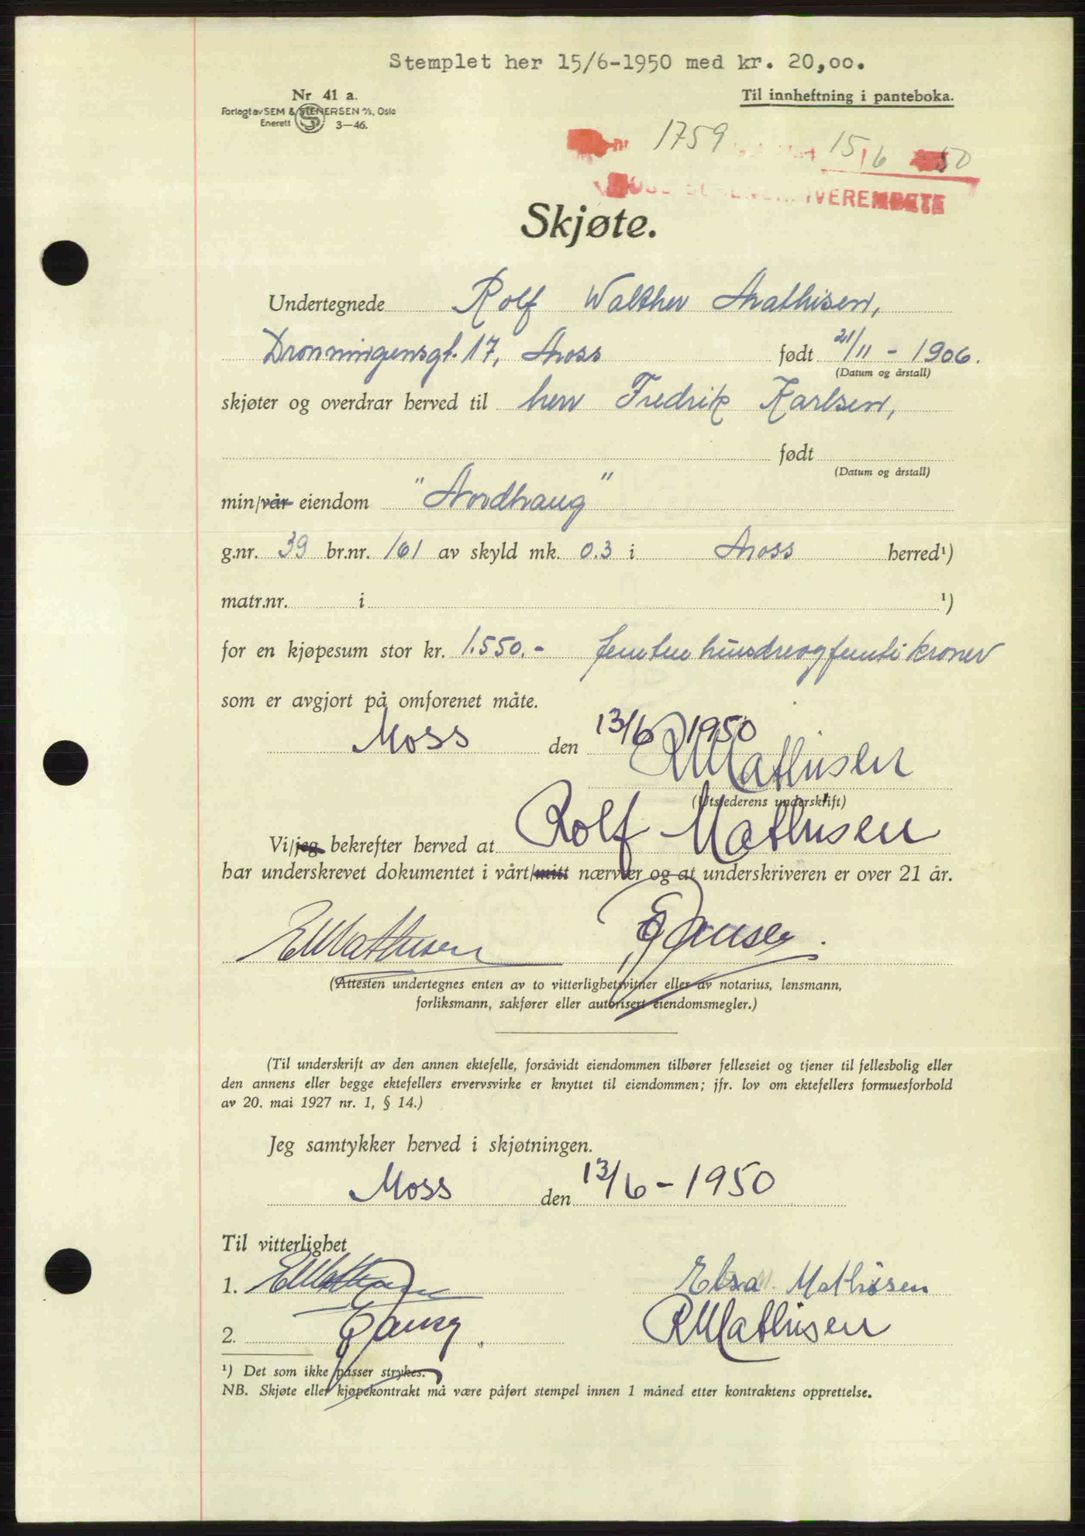 Stemplet her 15/6-1950 med kr. 20,oo.
Nr 41 a.
Forlagt av SEM & STENERSEN A/S, Oslo
Enerett 3-46.
Til innheftning i panteboka.
nr. 1759 15/6 50
MOSS SORENSKRIVEREMBETE
Skjøte.
Undertegnede Rolf Walther Mathisen,
Dronningensgt. 17, Moss født 21/11 - 1906.
(Datum og årstall)
skjøter og overdrar herved til herr Fredrik Karlsen,
født
(Datum og årstall)
min/vår eiendom "Nordhaug"
g.nr. 39 br.nr. 161 av skyld mk. 0.3 i Moss herred¹)
matr.nr. i ¹)
for en kjøpesum stor kr. 1.550.- femten hundreogfemti kroner
som er avgjort på omforenet måte.
Moss den 13/6 1950
RMathisen
(Utstederens underskrift)
Vi/jeg bekrefter herved at Rolf Mathisen
har underskrevet dokumentet i vårt/mitt nærvær og at underskriveren er over 21 år.
EMathisen
(Attesten undertegnes enten av to vitterlighetsvitner eller av notarius, lensmann,
forliksmann, sakfører eller autorisert eiendomsmegler.)
(Til underskrift av den annen ektefelle, forsåvidt eiendommen tilhører felleseiet og tjener til fellesbolig eller
den annens eller begge ektefellers ervervsvirke er knyttet til eiendommen; jfr. lov om ektefellers formuesforhold
av 20. mai 1927 nr. 1, § 14.)
Jeg samtykker herved i skjøtningen.
Moss den 13/6 - 1950
Til vitterlighet
1. EMathisen Elsa Mathisen
2. RMathisen
¹) Det som ikke passer strykes.
NB. Skjøte eller kjøpekontrakt må være påført stempel innen 1 måned etter kontraktens opprettelse.